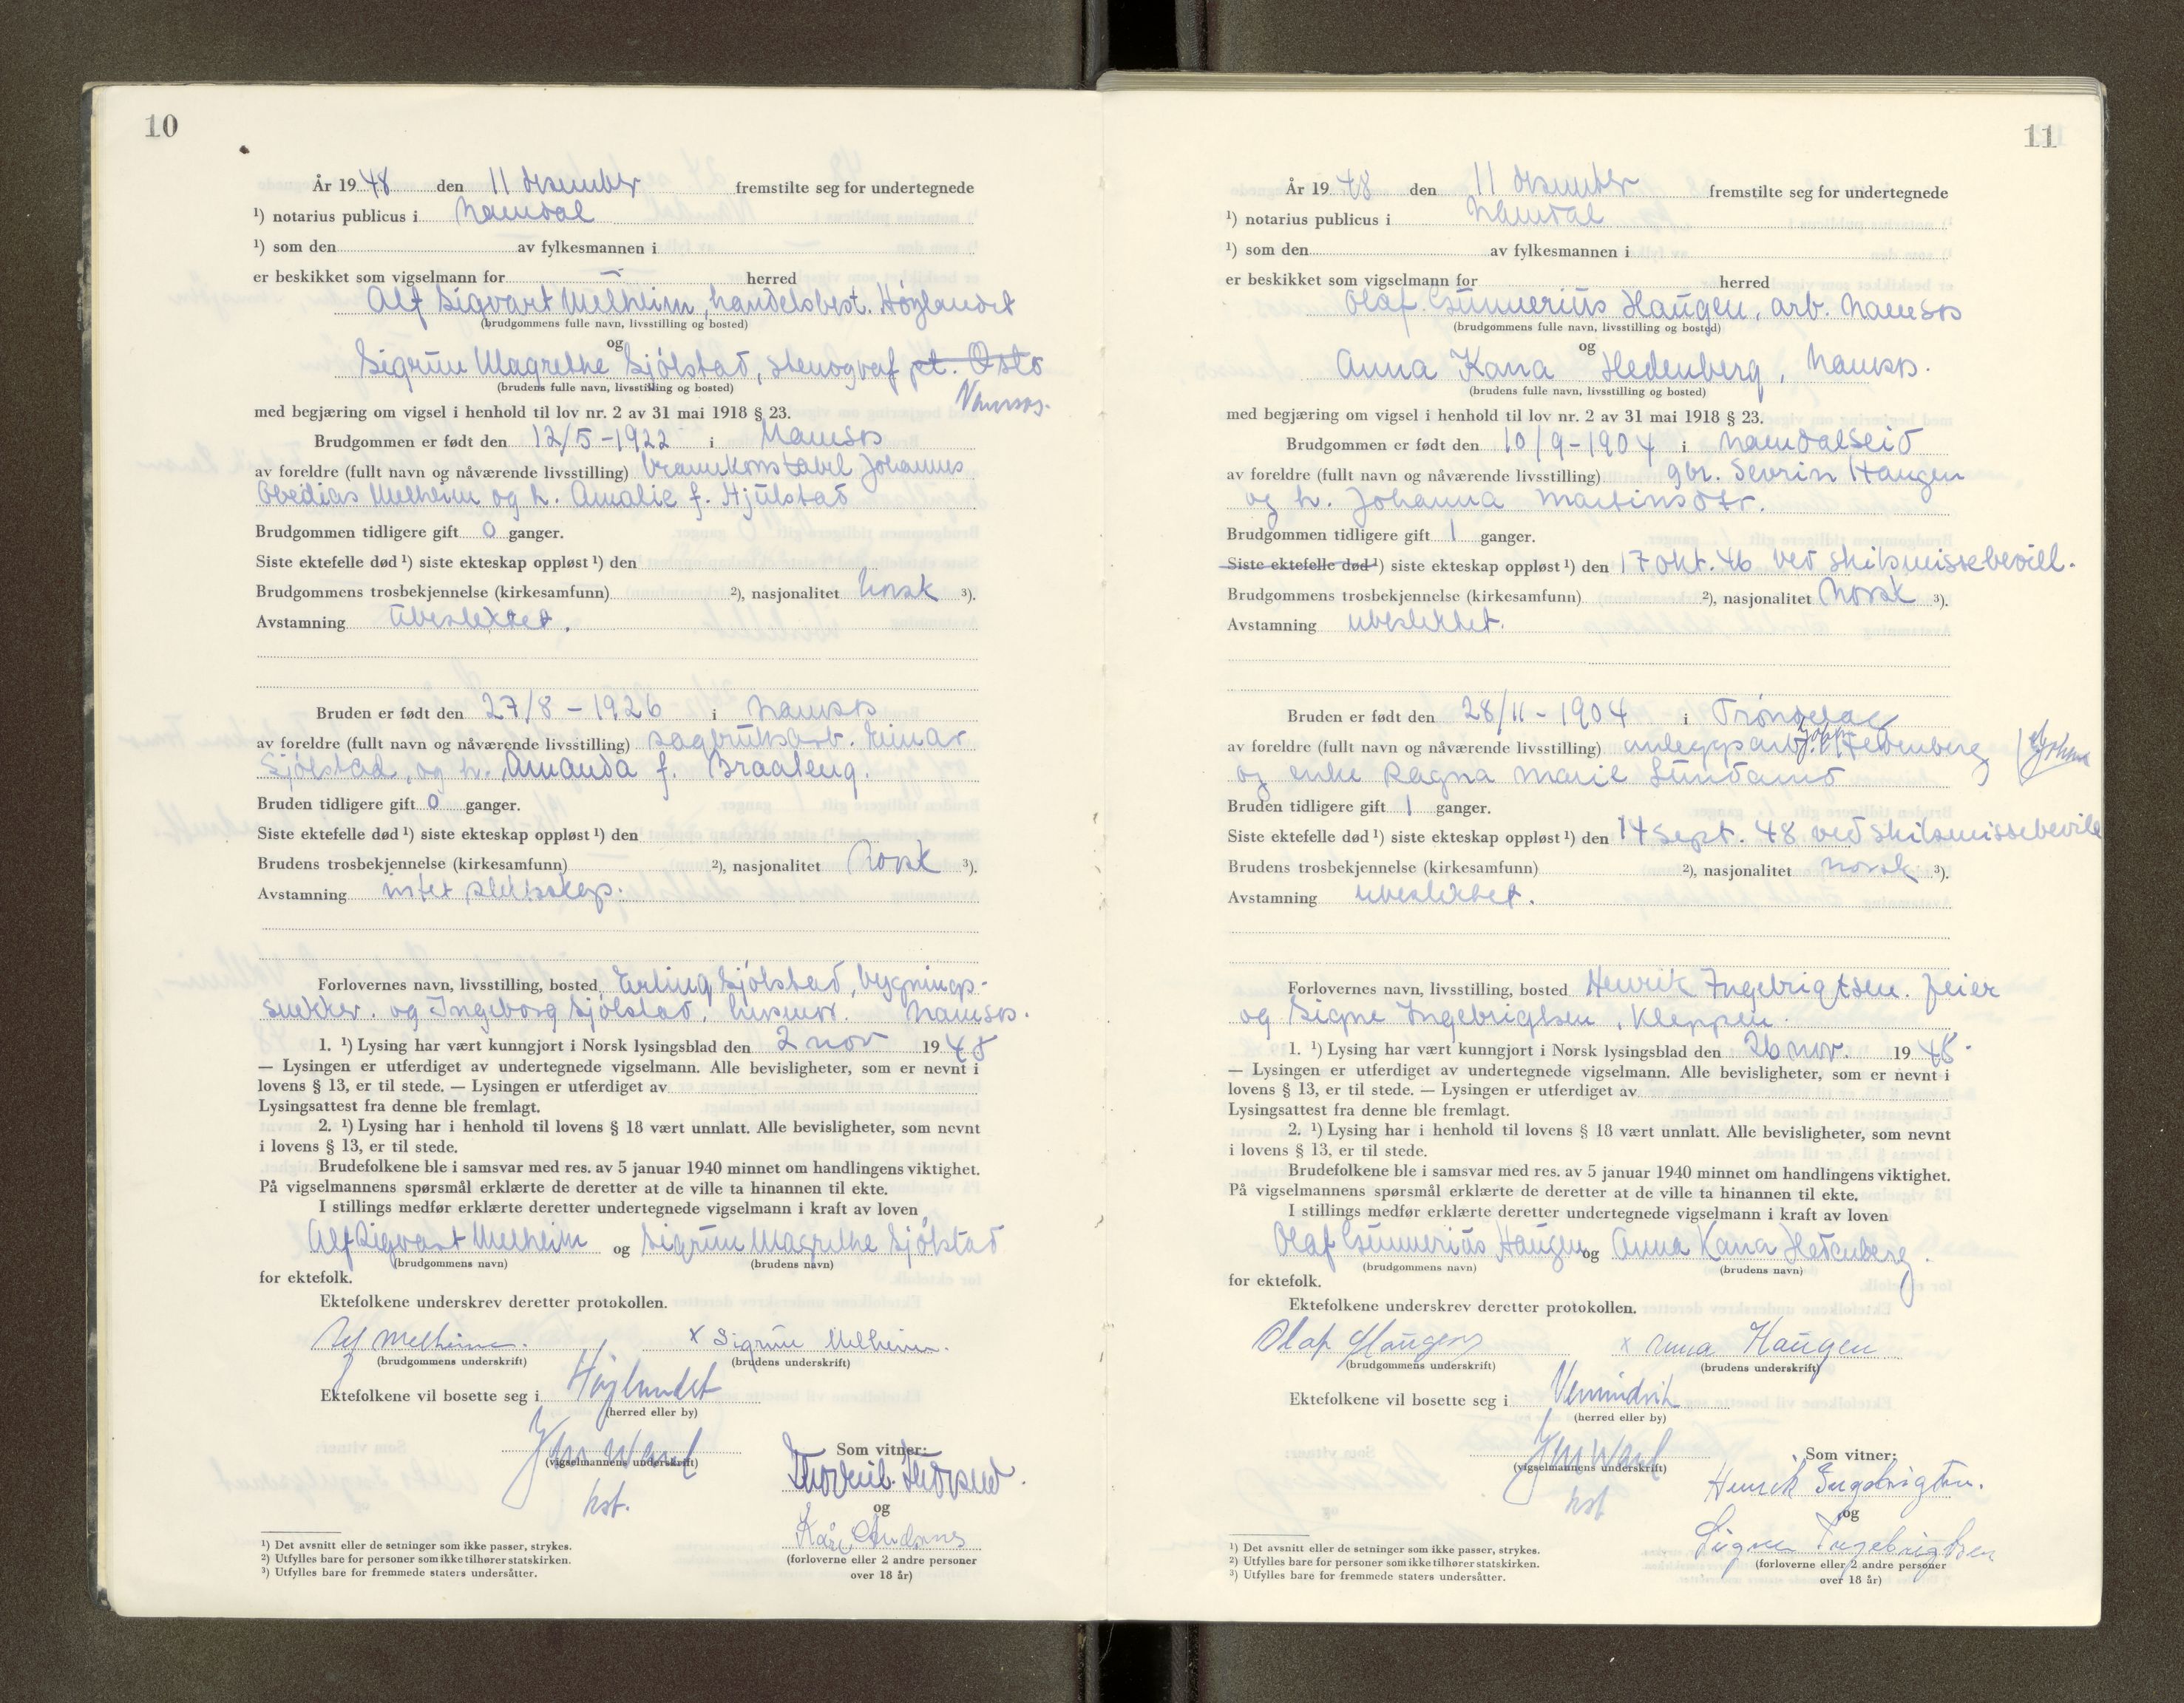 10
År 1948 den 11 desember fremstilte seg for undertegnede
¹) notarius publicus i Namdal
¹) som den av fylkesmannen i
er beskikket som vigselmann for — herred
Alf Sigvart Melheim, handelsbest. Høylandet
(brudgommens fulle navn, livsstilling og bosted)
og
Sigrun Magrethe Sjølstad, stenograf pt. Oslo
(brudens fulle navn, livsstilling og bosted)
Namsos.
med begjæring om vigsel i henhold til lov nr. 2 av 31 mai 1918 § 23.
Brudgommen er født den 12/5-1922 i Namsos
av foreldre (fullt navn og nåværende livsstilling) brannkonstabel Johannes
Obedias Melheim og h. Amalie f. Hjulstad
Brudgommen tidligere gift 0 ganger.
Siste ektefelle død ¹) siste ekteskap oppløst ¹) den
Brudgommens trosbekjennelse (kirkesamfunn) ²), nasjonalitet norsk ³).
Avstamning ubeslektet.
Bruden er født den 27/8-1926 i Namsos
av foreldre (fullt navn og nåværende livsstilling) sagbruksarb. Einar
Sjølstad, og h. Amanda f. Braaleng.
Bruden tidligere gift 0 ganger.
Siste ektefelle død ¹) siste ekteskap oppløst ¹) den
Brudens trosbekjennelse (kirkesamfunn) ²), nasjonalitet norsk ³).
Avstamning intet slektskap.
Forlovernes navn, livsstilling, bosted Erling Sjølstad, bygnings-
snekker. og Ingeborg Sjølstad, husmor. Namsos.
1. ¹) Lysing har vært kunngjort i Norsk lysingsblad den 2 nov 1948
— Lysingen er utferdiget av undertegnede vigselmann. Alle bevisligheter, som er nevnt i
lovens § 13, er til stede. — Lysingen er utferdiget av
Lysingsattest fra denne ble fremlagt.
2. ¹) Lysing har i henhold til lovens § 18 vært unnlatt. Alle bevisligheter, som nevnt
i lovens § 13, er til stede.
Brudefolkene ble i samsvar med res. av 5 januar 1940 minnet om handlingens viktighet.
På vigselmannens spørsmål erklærte de deretter at de ville ta hinannen til ekte.
I stillings medfør erklærte deretter undertegnede vigselmann i kraft av loven
Alf Sigvart Melheim og Sigrun Magrethe Sjølstad
(brudgommens navn) (brudens navn)
for ektefolk.
Ektefolkene underskrev deretter protokollen.
Alf Melheim. x Sigrun Melheim.
(brudgommens underskrift) (brudens underskrift)
Ektefolkene vil bosette seg i Høylandet
(herred eller by)
Som vitner:
(vigselmannens underskrift)
kst.
og
(forloverne eller 2 andre personer
over 18 år)
¹) Det avsnitt eller de setninger som ikke passer, strykes.
²) Utfylles bare for personer som ikke tilhører statskirken.
³) Utfylles bare for fremmede staters undersåtter.
11
År 1948 den 11 desember fremstilte seg for undertegnede
¹) notarius publicus i Namdal
¹) som den av fylkesmannen i
er beskikket som vigselmann for herred
Olaf Gunnerius Haugen, arb. Namsos
(brudgommens fulle navn, livsstilling og bosted)
og
Anna Kana Hedenberg, Namsos.
(brudens fulle navn, livsstilling og bosted)
med begjæring om vigsel i henhold til lov nr. 2 av 31 mai 1918 § 23.
Brudgommen er født den 10/9-1904 i Namdalseid
av foreldre (fullt navn og nåværende livsstilling) gbr. Sevrin Haugen
og h. Johanna Martinsdtr.
Brudgommen tidligere gift 1 ganger.
Siste ektefelle død ¹) siste ekteskap oppløst ¹) den 17 okt. 46 ved skilsmissebevill.
Brudgommens trosbekjennelse (kirkesamfunn) ²), nasjonalitet norsk ³).
Avstamning ubeslektet.
Bruden er født den 28/11-1904 i Trøndelag
av foreldre (fullt navn og nåværende livsstilling) anleggsarb. Hedenberg
og enke Ragna Marie Sundamo
Bruden tidligere gift 1 ganger.
Siste ektefelle død ¹) siste ekteskap oppløst ¹) den 14 sept. 48 ved skilsmissebevill
Brudens trosbekjennelse (kirkesamfunn) ²), nasjonalitet norsk ³).
Avstamning ubeslektet.
Forlovernes navn, livsstilling, bosted Henrik Ingebrigtsen. feier
og Signe Ingebrigtsen, Kleppen.
1. ¹) Lysing har vært kunngjort i Norsk lysingsblad den 26 nov. 1948.
— Lysingen er utferdiget av undertegnede vigselmann. Alle bevisligheter, som er nevnt i
lovens § 13, er til stede. — Lysingen er utferdiget av
Lysingsattest fra denne ble fremlagt.
2. ¹) Lysing har i henhold til lovens § 18 vært unnlatt. Alle bevisligheter, som nevnt
i lovens § 13, er til stede.
Brudefolkene ble i samsvar med res. av 5 januar 1940 minnet om handlingens viktighet.
På vigselmannens spørsmål erklærte de deretter at de ville ta hinannen til ekte.
I stillings medfør erklærte deretter undertegnede vigselmann i kraft av loven
Olaf Gunnerius Haugen og Anna Kana Hedenberg.
(brudgommens navn) (brudens navn)
for ektefolk.
Ektefolkene underskrev deretter protokollen.
Olaf Haugen x Anna Haugen
(brudgommens underskrift) (brudens underskrift)
Ektefolkene vil bosette seg i Vemundvik
(herred eller by)
Som vitner:
(vigselmannens underskrift)
kst
Henrik Ingebrigtsen.
og
Signe Ingebrigtsen
(forloverne eller 2 andre personer
over 18 år)
¹) Det avsnitt eller de setninger som ikke passer, strykes.
²) Utfylles bare for personer som ikke tilhører statskirken.
³) Utfylles bare for fremmede staters undersåtter.